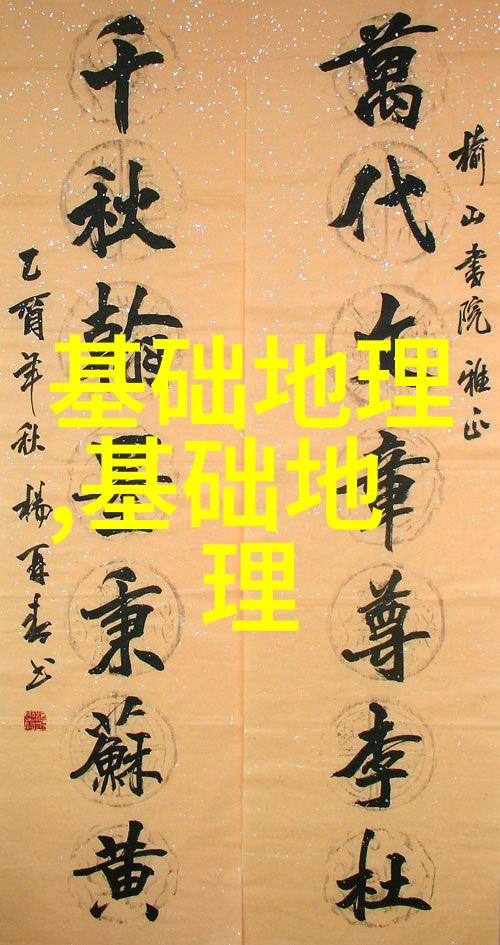 榆山書院雅正
萬代文章尊李杜
千秋翰墨秉蘇黄
乙酉年秋楊再春书
基础地理
,基础地
理